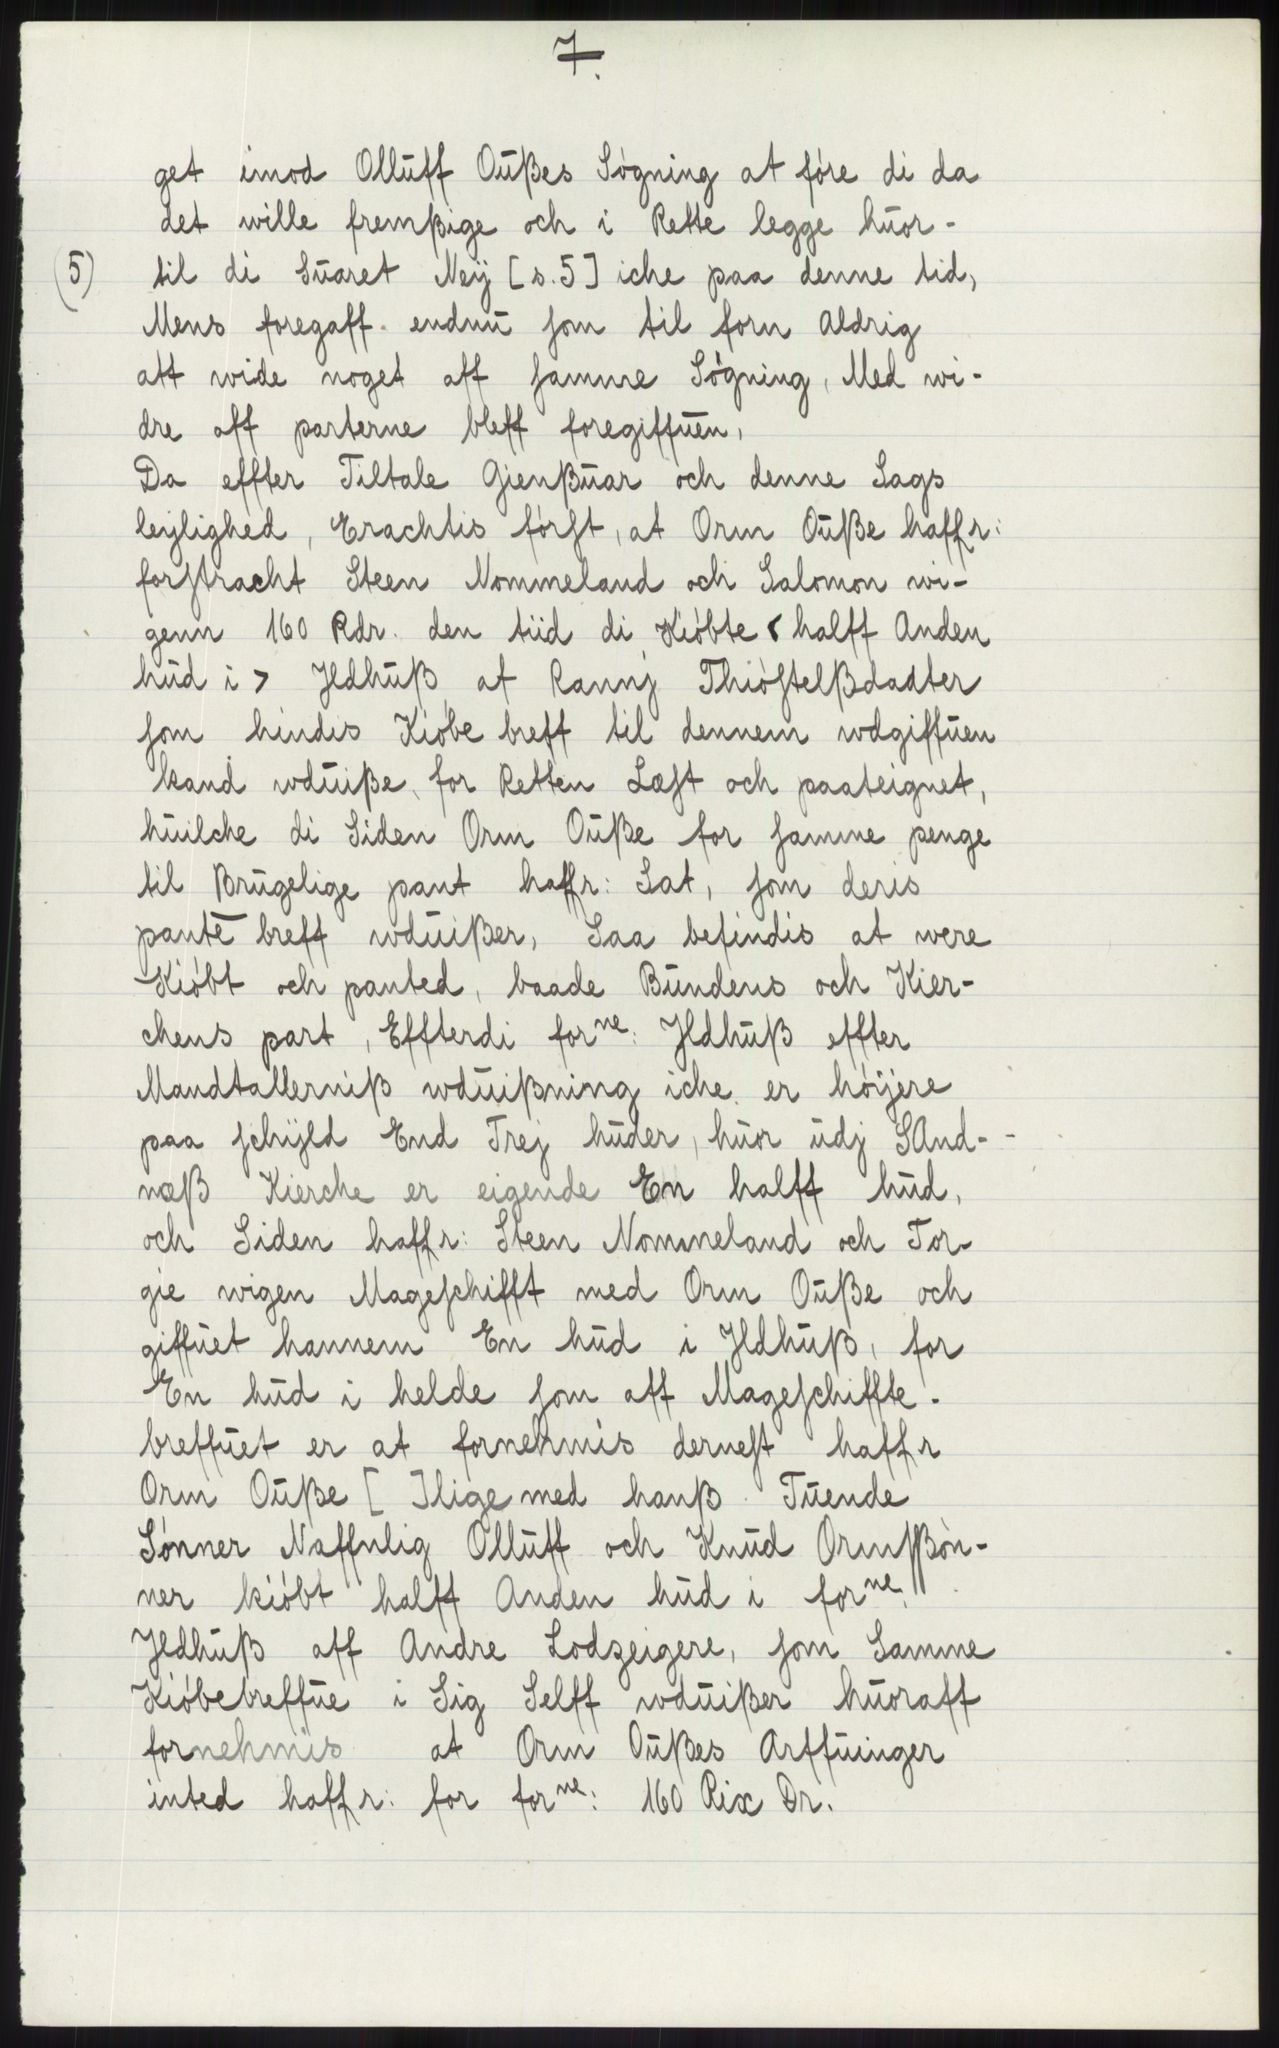 7.
get imod Olluff Oußes Søgning at føre di da
det wille fremßige och i Rette legge huor-
(5) til di Suaret Neij [s. 5] iche paa denne tid,
Mens foregaff endnu som til forn Aldrig
att wide noget aff samme Søgning, Med wi-
dre aff parterne bleff foregiffuen,
Da effter Tiltale Gienßuar och denne Sags
leylighed, Erachtis først, at Orm Ouße haffr:
forstracht Steen Nommeland och Salomon wi-
genn 160 Rdr. den tiid di Kiøbte < halff Anden
hud i > Jldhuß af Rannj Thiøstelßdadter
som hindis Kiøbe breff til dennem wdgiffuen
kand wduiße, for Retten Læst och paateignet,
huilche di Siden Orm Ouße for samme penge
til Brugelige pant haffr: Sat, som deris
pante breff wduißer, Saa befindis at were
Kiøbt och panted, baade Bundens och Kier-
chens part, Effterdi forne: Jldhuß effter
Mandtallerniß wduißning iche er høijere
paa schijld End Trej huder, huor udj SAnd-
næß Kierche er eigende En halff hud,
och Siden haffr: Steen Nommeland och Tor-
gie wigen Mageschifft med Orm Ouße och
giffuet hannem En hud i Jldhuß, for
En hud i helde som aff Mageschiffte-
breffuet er at fornehmis dernest haffr
Orm Ouße [ Ilige med hanß Tuende
Sønner Naffnlig Olluff och Knud Ormsßøn-
ner kiøbt halff Anden hud i forne:
Jldhuß aff Andre Lodzeigere, som Samme
Kiøbebreffue i Sig Selff wduißer huoraff
fornehmis at Orm Oußes Arffuinger
inted haffr: for forne: 160 Rix Dr.